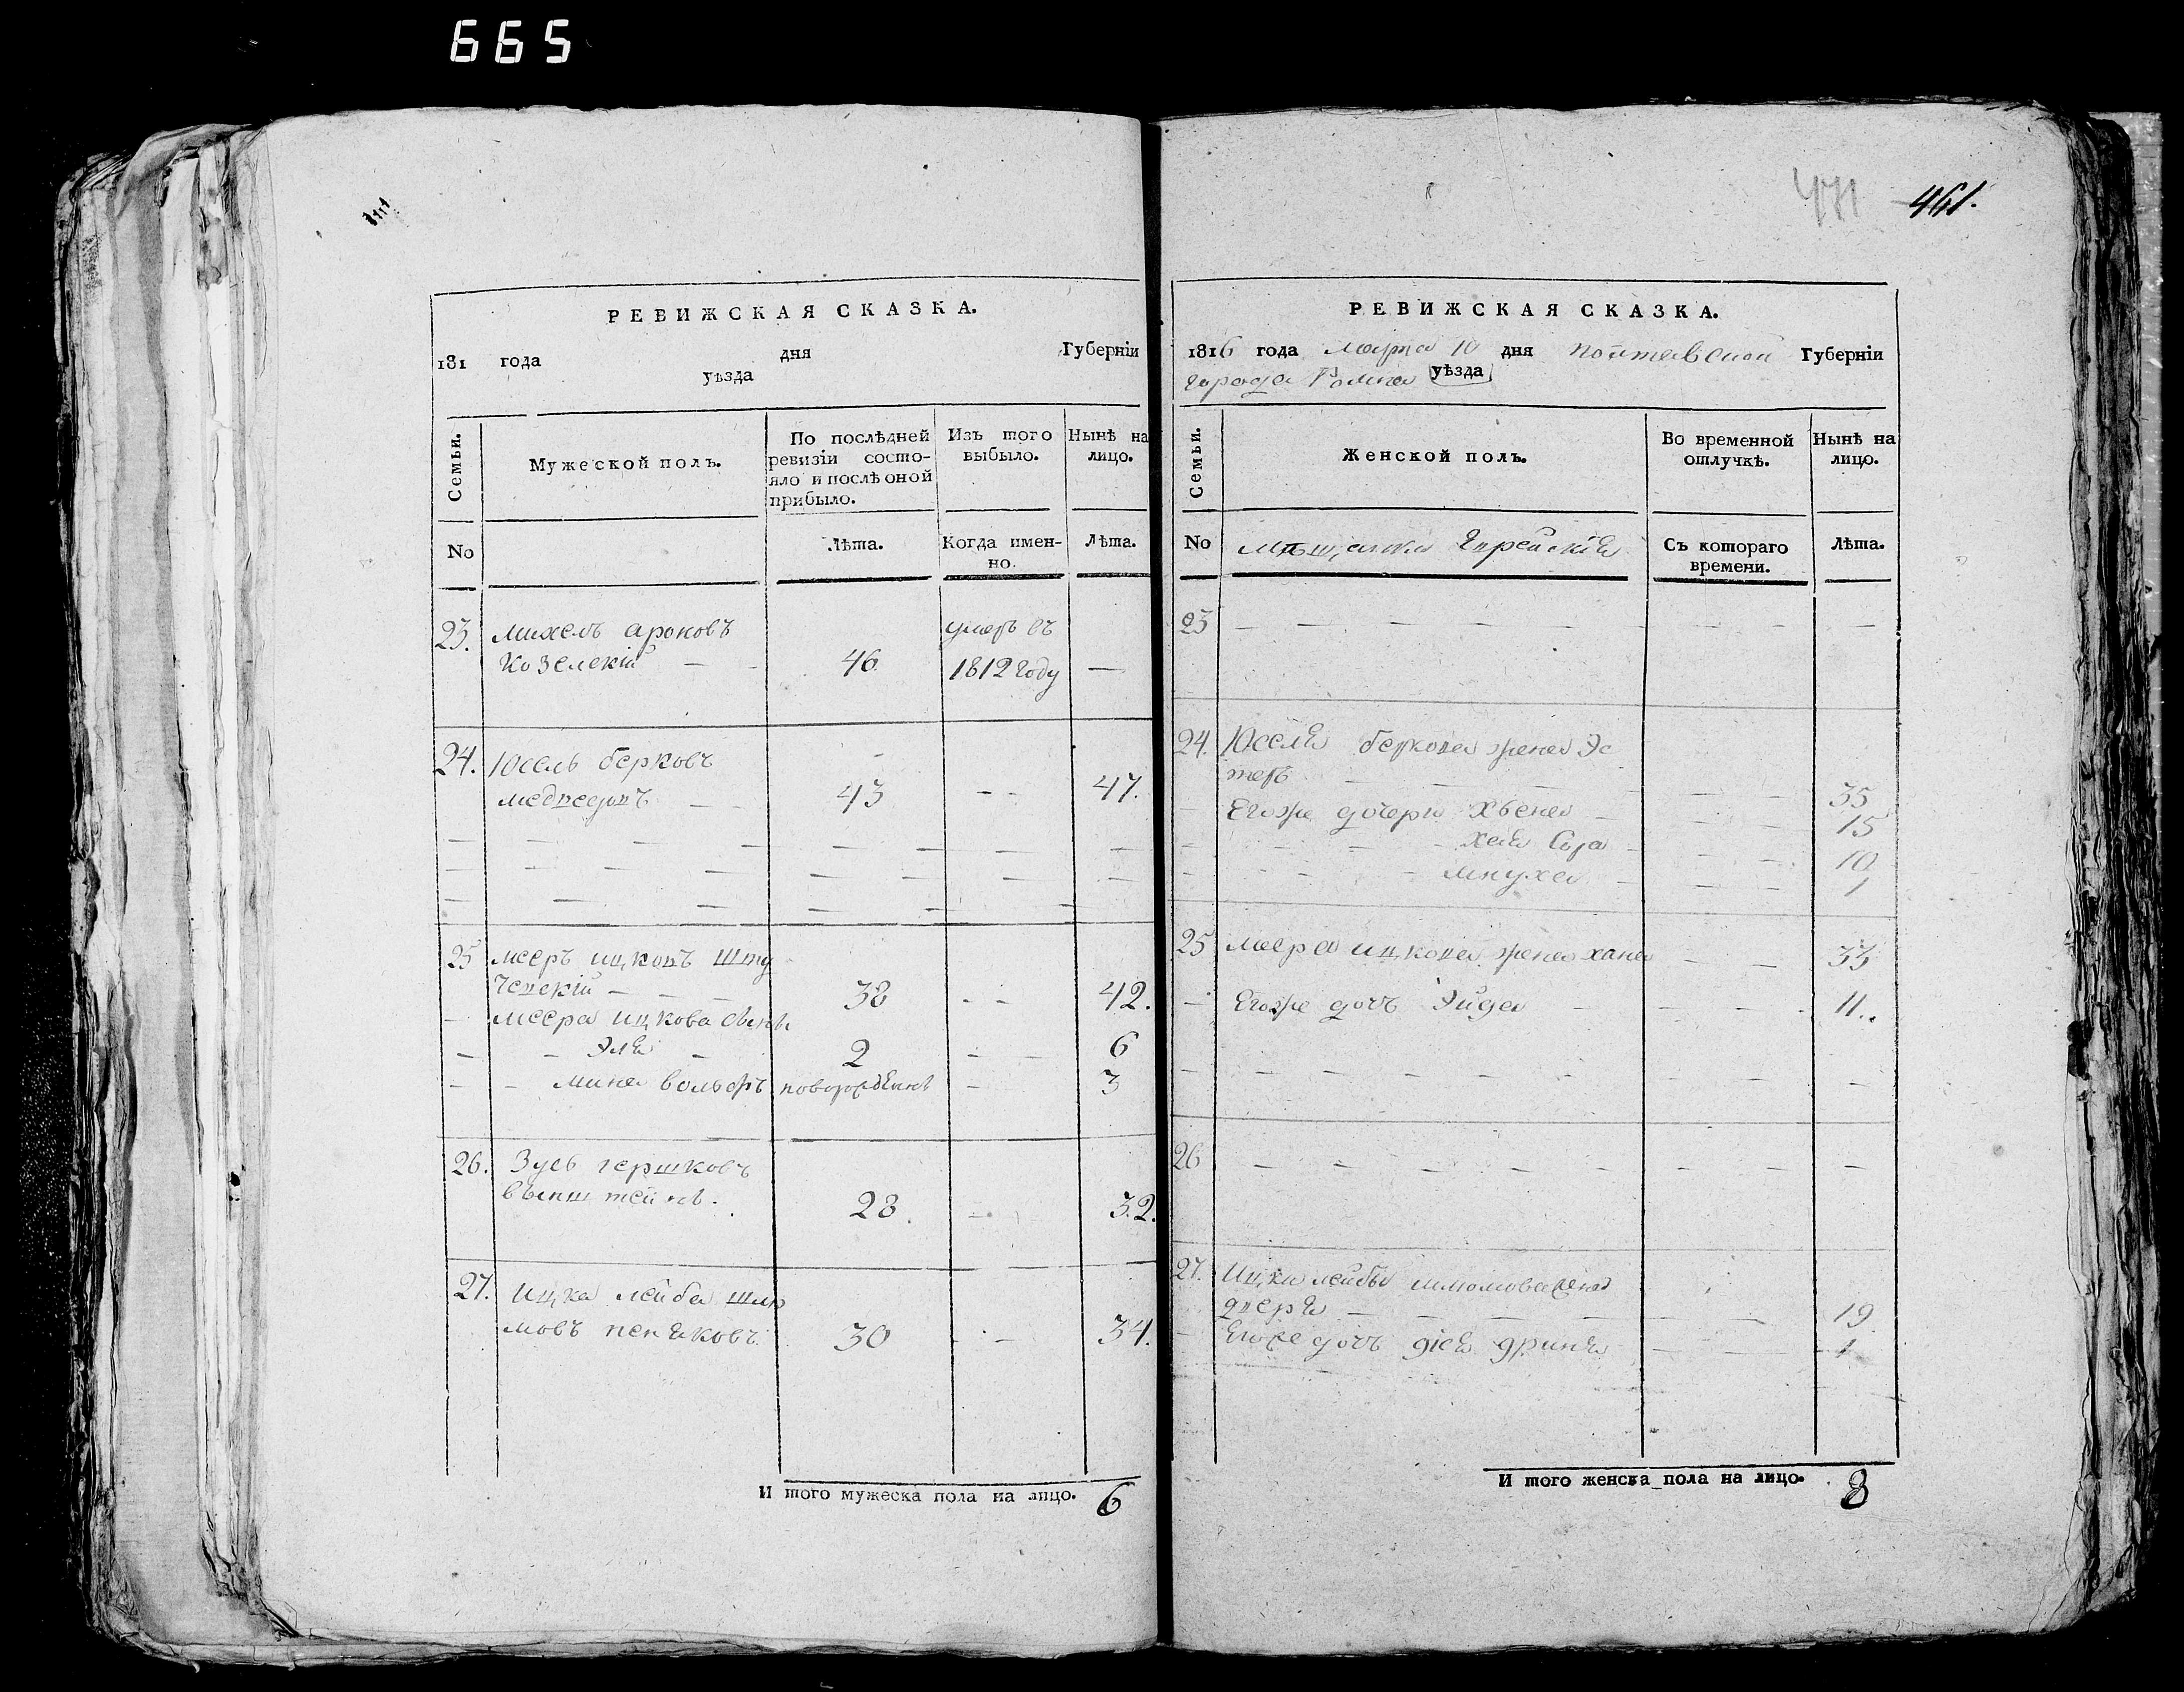 665
РЕВИЖСКАЯ СКАЗКА.
181 года дня Губерніи
уѣзда
Семьи.
Мужеской полъ.
По послѣдней ревизіи состо-
яло и послѣ оной
прибыло.
Изъ того
выбыло.
Нынѣ на
лицо.
No
Лѣта.
Когда имен-
но.
Лѣта.
23. Михель ароновъ умеръ въ
Козелскій 46 1812 году —
24. Юсель берковъ
медведовъ 43 47.
25 мееръ ицковъ шту
ческій 38 42.
меера ицкова сынъ
Эля 2 6
мина вольфъ новорожденъ 3
26. Зусь гершковъ
выпштейнъ. 28. 32.
27. Ицка лейба шлио
мовъ пеняковъ 30 34.
И того мужеска пола на лицо. 6
471 461.
РЕВИЖСКАЯ СКАЗКА.
1816 года марта 10 дня полтавской Губерніи
города Ромна уѣзда
Семьи.
Женской полъ.
Во временной
отлучкѣ.
Нынѣ на
лицо.
No
Мѣщанки Еврейскія
Съ котораго
времени.
Лѣта.
23 — — —
24. Юселя беркова жена Эс
теръ 35
Егоже дочери Хвеня 15
хая Сора 10
мнуха 1
25 меера ицкова жена хана 33
Егоже дочъ Эйда 11.
26 — — —
27. Ицки лейбы шлиомова жена
двера 19
Егоже дочъ діся дриня 1
И того женска пола на лицо. 8